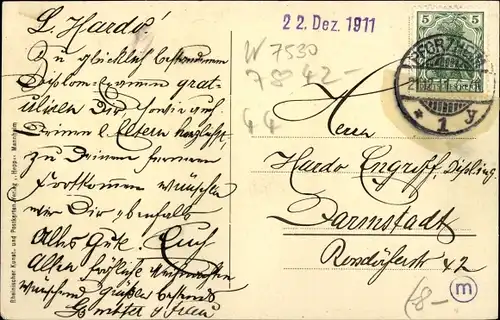 L. Hardo!
Zu glücklich bestandenem
Diplom-Examen grat-
ulieren Dir sowie auch
Deinen l. Eltern herzlichst,
zu Deinem ferneren
Fortkommen wünschen
wir Dir ebenfalls
Alles Gute. Euch
Allen fröhliche Weihnachten
wünschend grüßen bestens
u. Frau
Rheinischer Kunst- und Postkarten-Verlag Mannheim
22. Dez. 1911
W 7530
78 42-
44
5 5
PFORZHEIM
* 1 y
Herrn
Hardo Engriff, Dipl. Ing.
Darmstadt
Roßdörferstr 42
m
18-